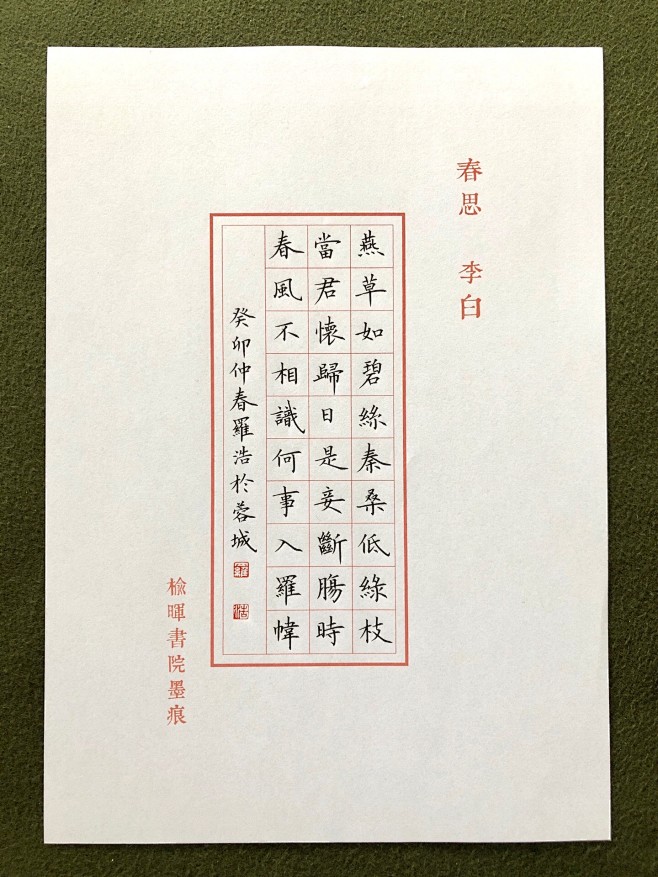 春思 李白
燕草如碧絲秦桑低綠枝
當君懷歸日是妾斷腸時
春風不相識何事入羅幃
癸卯仲春羅浩於蓉城
羅
浩
榆暉書院墨痕